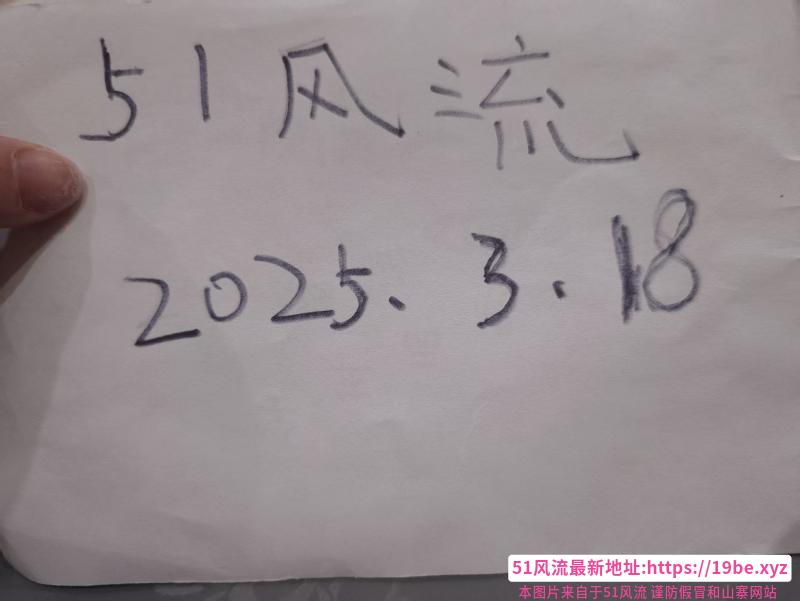 51风流
2025.3.18
51风流最新地址:https://19be.xyz
本图片来自于51风流 谨防假冒和山寨网站